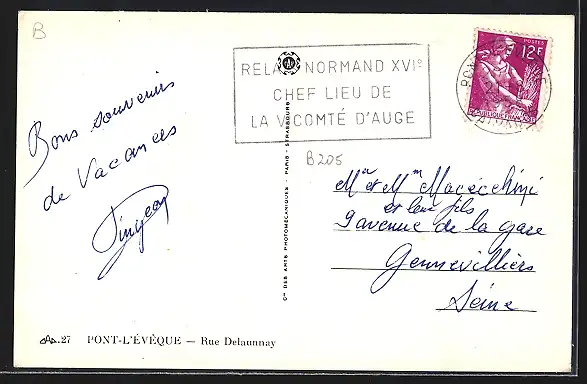 B
RELAIS NORMAND XVIº
CHEF LIEU DE
LA VICOMTÉ D'AUGE
POSTES
12F
REPUBLIQUE FRANÇAISE
B205
Bons souvenirs
de Vacances
Cie DES ARTS PHOTOMÉCANIQUES - PARIS - STRASBOURG
Mr et Mme Macecchini
et leur fils
9 avenue de la gare
Gennevilliers
Seine
27 PONT-L'ÉVÊQUE — Rue Delaunnay